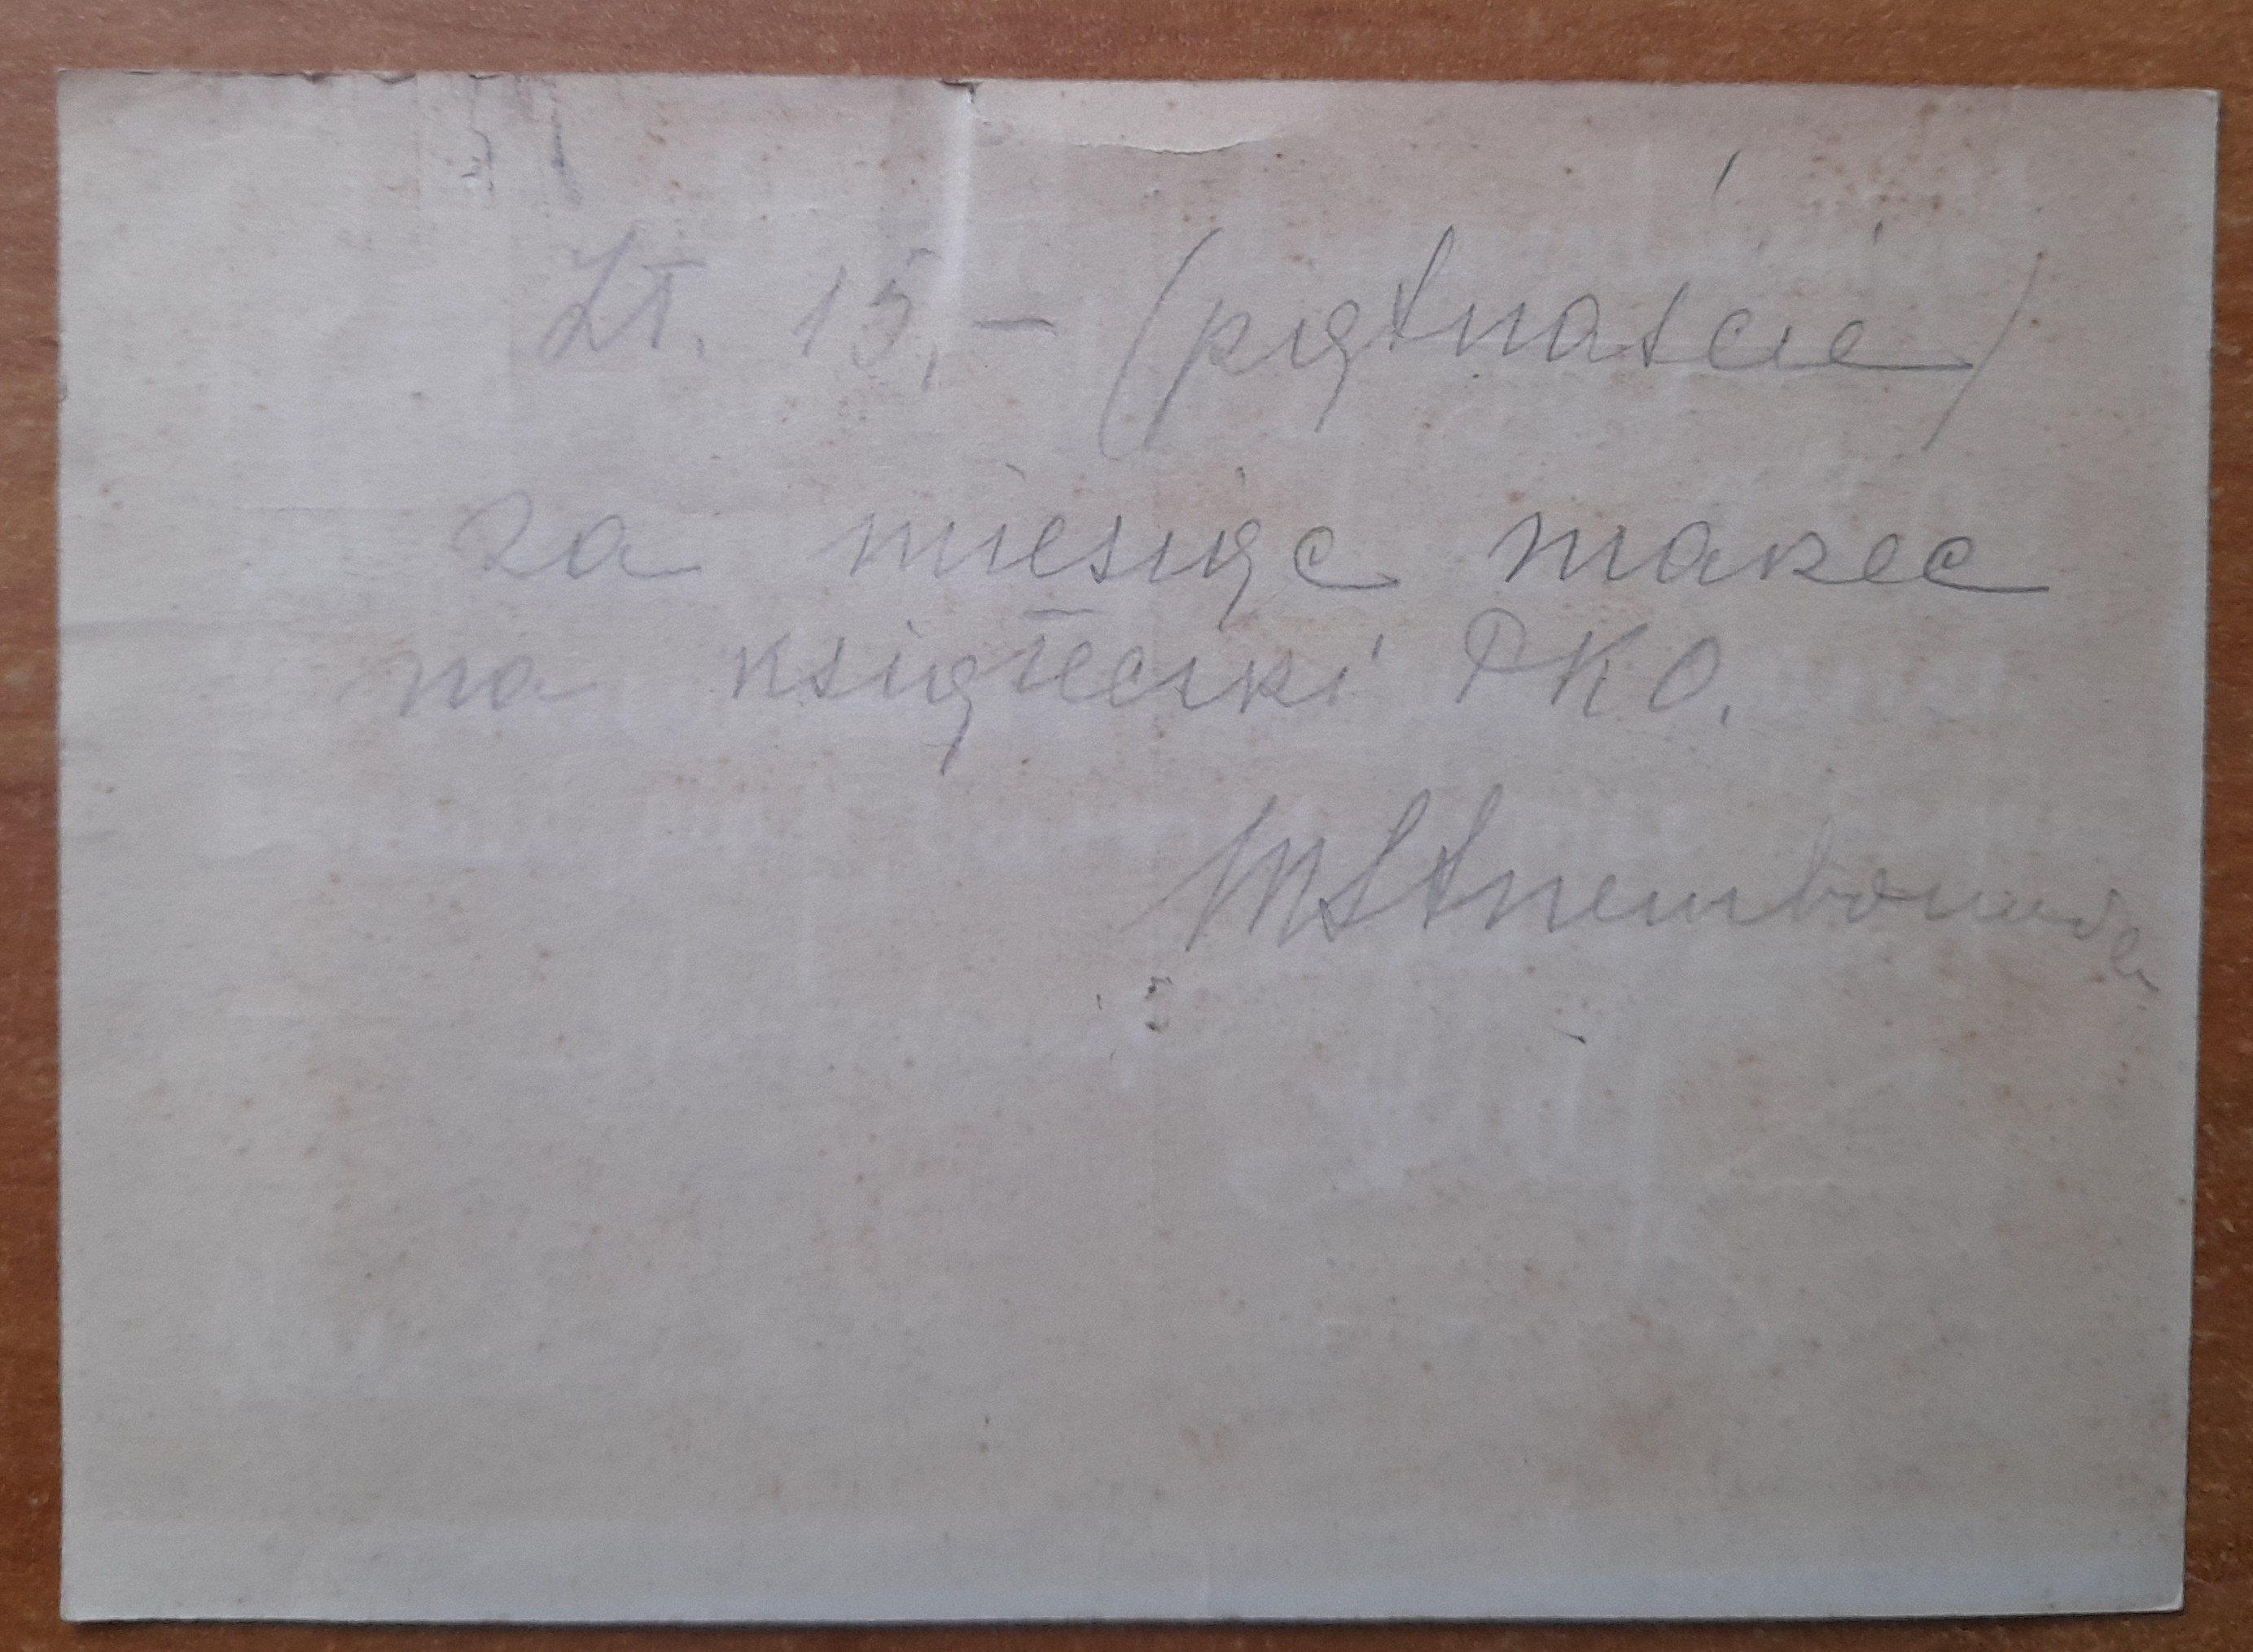 Zł. 15,- (piętnaście)
za miesiąc marzec
na książeczki PKO.